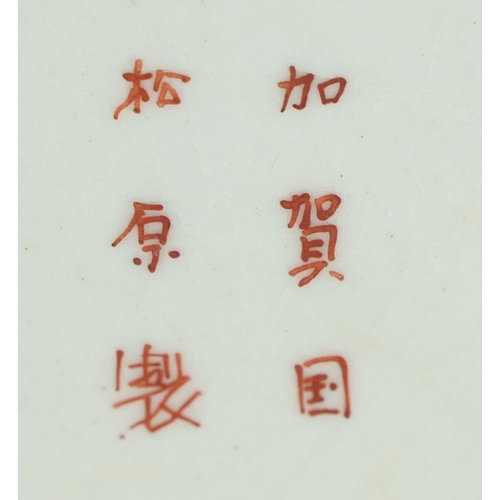 加賀国
松原製